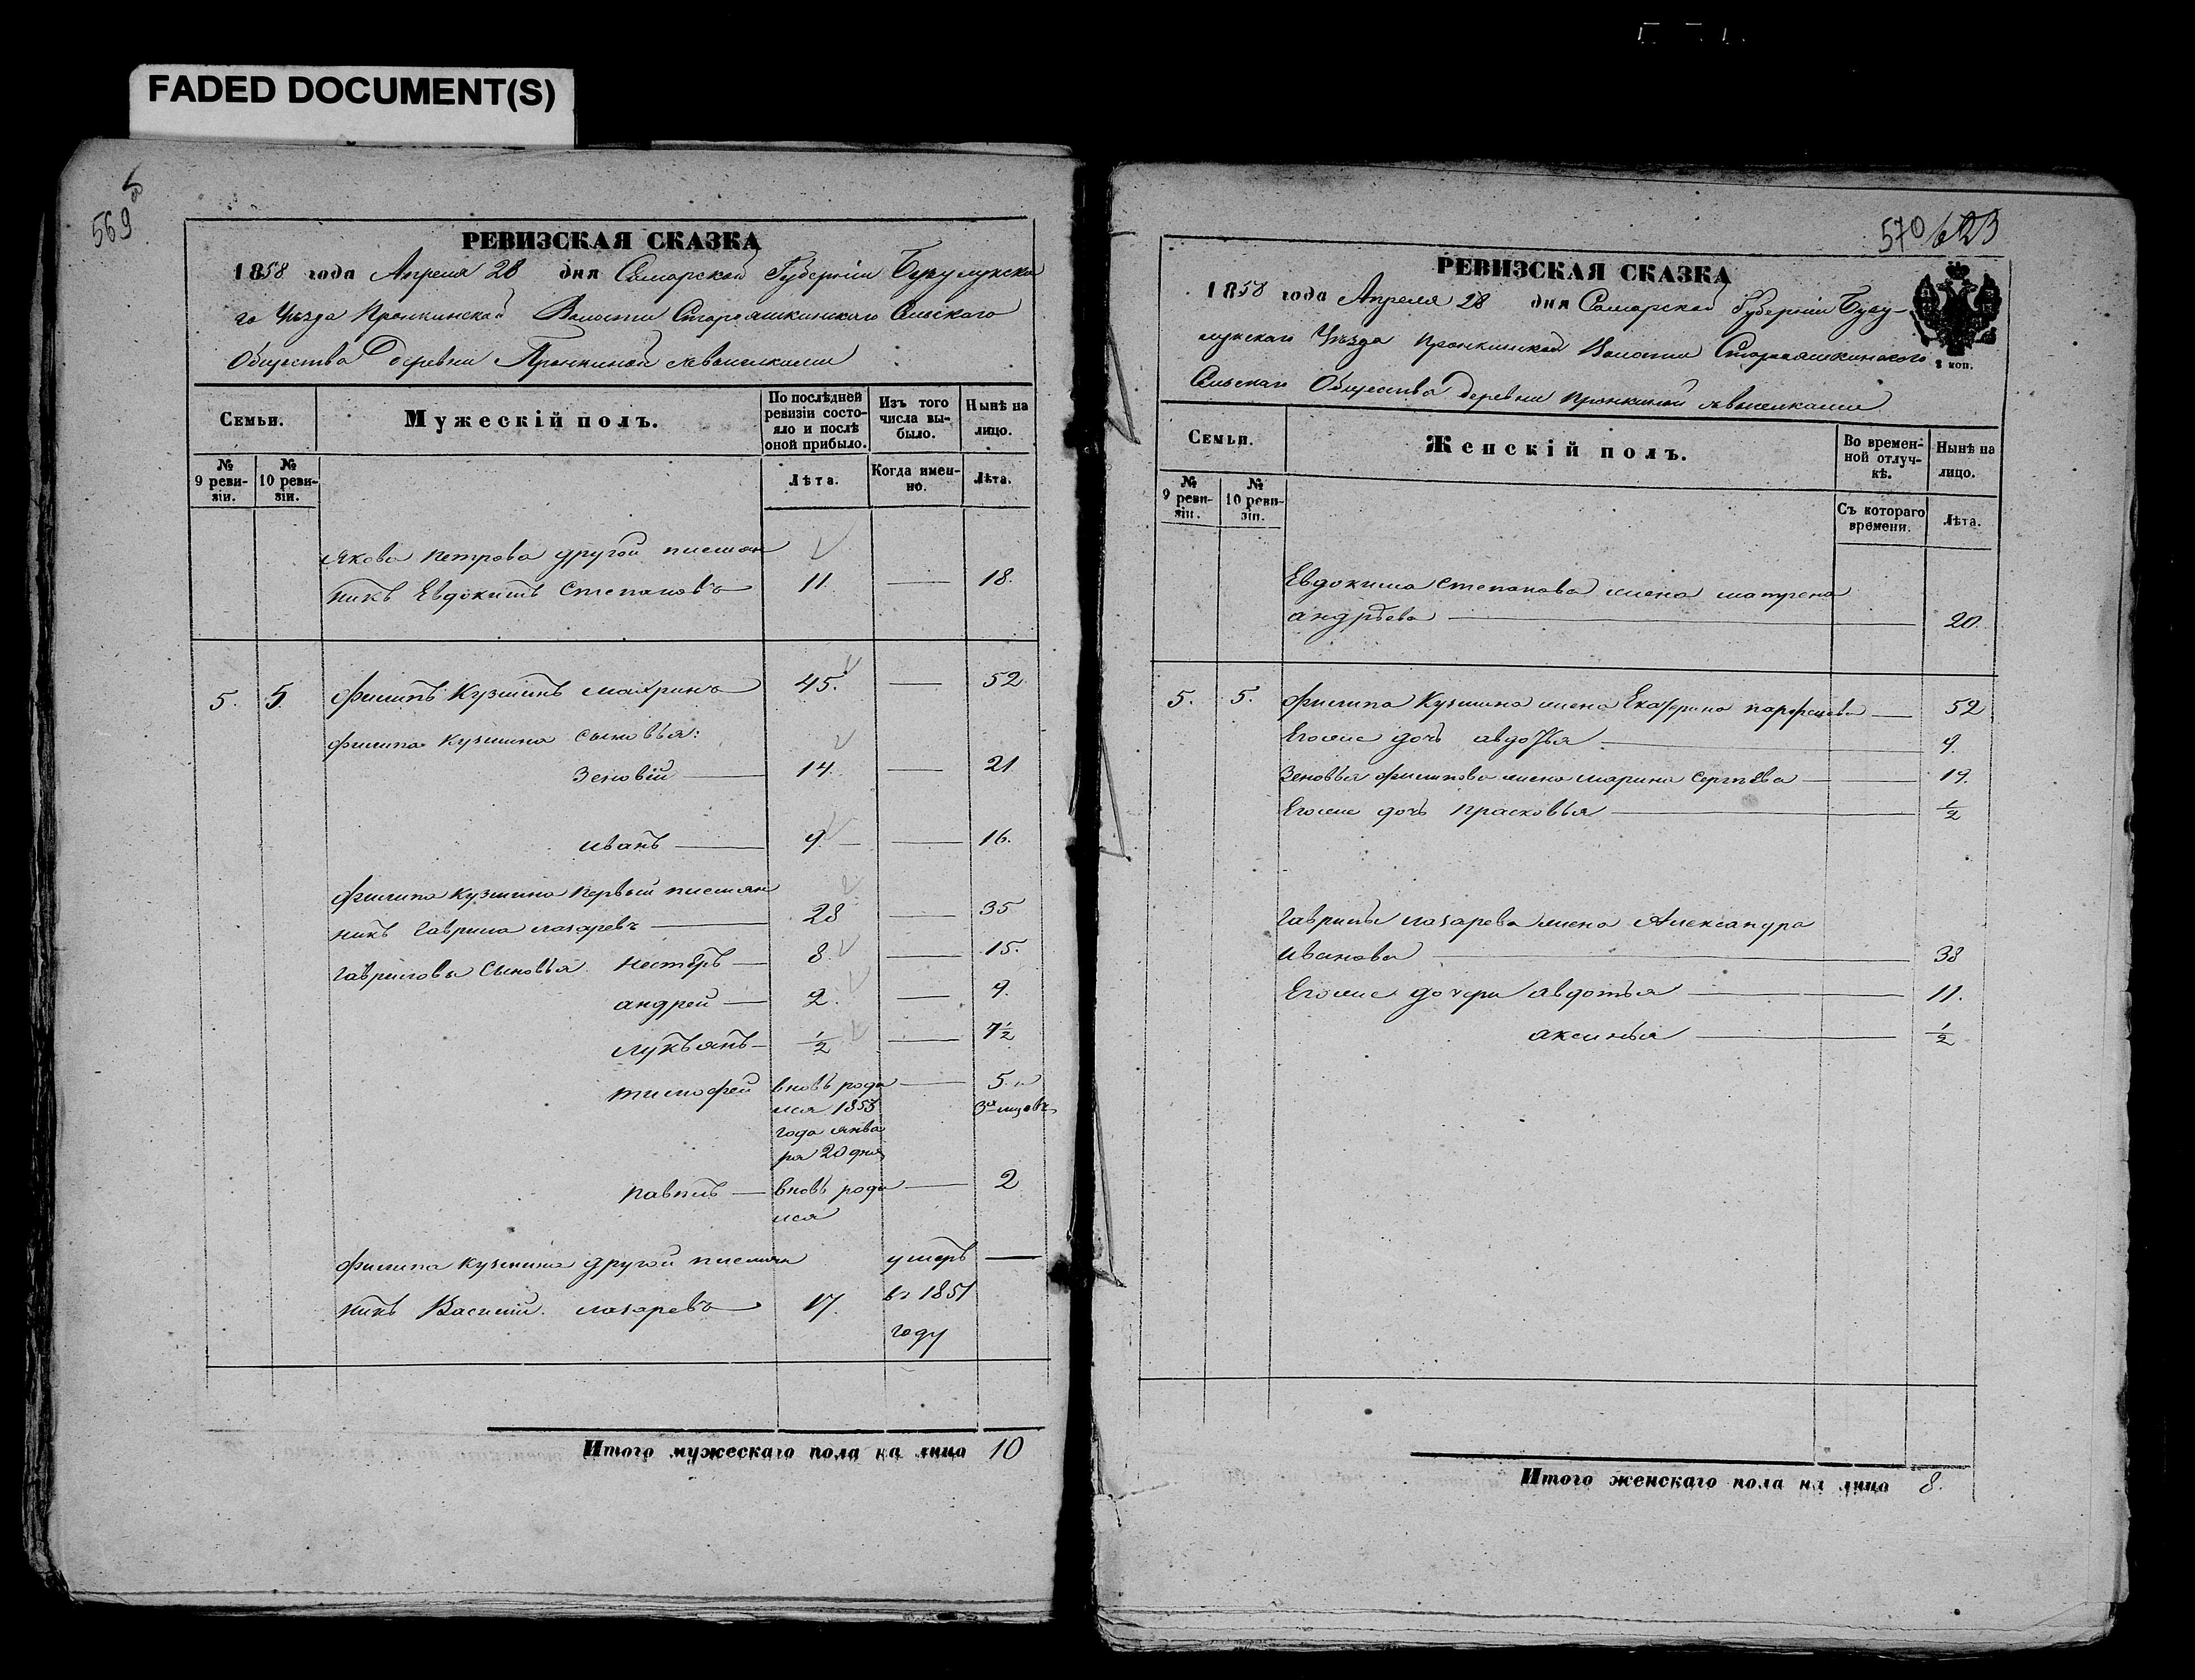 FADED DOCUMENT(S)
569
РЕВИЗСКАЯ СКАЗКА
1858 года Апреля 28 дня Самарской Губерніи Бузулукска
го Уѣзда Пронкинской Волости Старояшкинскаго Сельскаго
Общества Деревни Пронкиной
Семьи.
Мужескій полъ.
По послѣдней ревизіи состояло и послѣ оной прибыло.
Изъ того числа выбыло.
Нынѣ на лицо.
№ 9 ревизіи.
№ 10 ревизіи.
Лѣта.
Когда именно.
Лѣта.
Якова Петрова другой племян
никъ Евдокимъ Степановъ 11 — 18.
5. 5 Филипъ Кузминъ 45. — 52
Филипа Кузмина сыновья:
Зеновій — 14. — 21
Иванъ — 9. — 16.
Филипа Кузмина первый племян
никъ Гаврила Лазаревъ — 28 — 35
Гавриловы сыновья Нестеръ — 8. — 15.
Андрей — 2. — 9.
Лукьянъ — 1/2 — 7 1/2
Тимофей вновь роди — 5. и
лся 1853 3 мѣсяцовъ
года янва
ря 20 дня
Павелъ — вновь роди — 2
лся
Филипа Кузмина другой племян умеръ —
никъ Василій Лазаревъ 17. въ 1851
году
Итого мужескаго пола на лицо 10
570/623
РЕВИЗСКАЯ СКАЗКА
1858 года Апреля 28 дня Самарской Губерніи Бузу-
лукскаго Уѣзда Пронкинской Волости Старояшкинскаго
Сельскаго Общества Деревни Пронкиной
2 коп.
Семьи.
Женскій полъ.
Во временной отлучкѣ.
Нынѣ на лицо.
№ 9 ревизіи.
№ 10 ревизіи.
Съ котораго времени.
Лѣта.
Евдокима Степанова жена Матрена
Андрѣева — 20.
5. 5. Филипа Кузмина жена Екатерина — 52
Егоже дочь Авдотья — 9.
Зеновья Филипова жена Марина Сергѣева — 19.
Егоже дочь Прасковья — 1/2
Гаврилы Лазарева жена Александра
Иванова — 38
Егоже дочери Авдотья — 11.
Аксинья — 1/2
Итого женскаго пола на лицо 8.